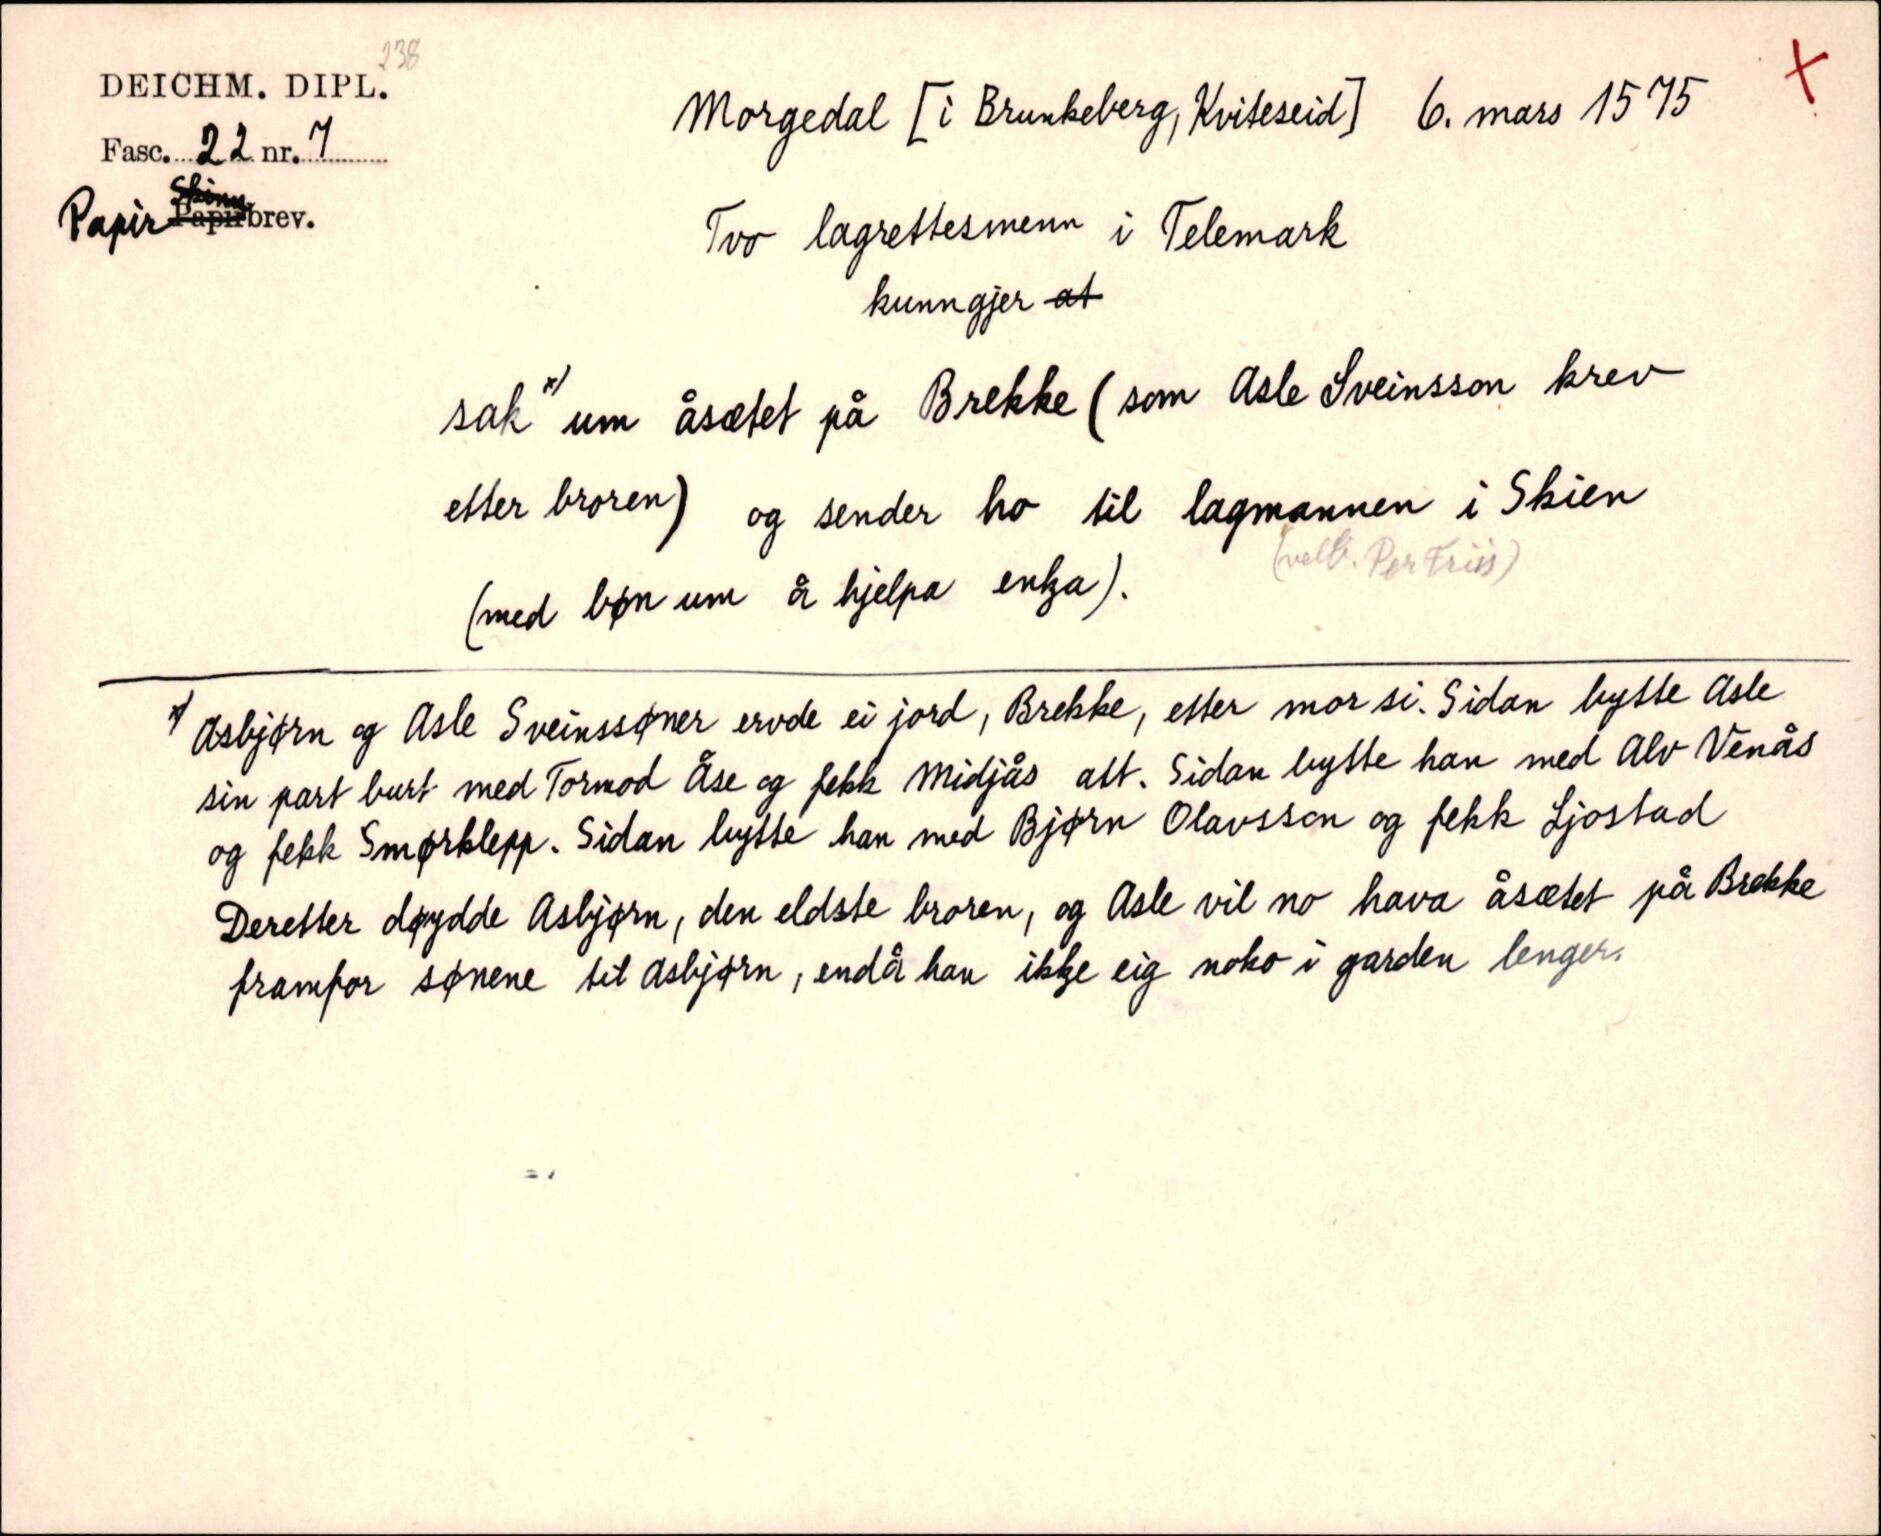 238
DEICHM. DIPL.
Fasc. 22 nr. 7
Skinn
Papir Papirbrev.
Morgedal [i Brunkeberg, Kviteseid] 6. mars 1575
Tvo lagrettesmenn i Telemark
kunngjer at
sak x) um åsætet på Brekke (som Asle Sveinsson krev
etter broren) og sender ho til lagmannen i Skien
(velb. Per Friis)
(med bøn um å hjelpa enkja).
x) Asbjørn og Asle Sveinssøner ervde ei jord, Brekke, etter mor si. Sidan bytte Asle
sin part burt med Tormod Åse og fekk Midjås att. Sidan bytte han med Alv Venås
og fekk Smørklepp. Sidan bytte han med Bjørn Olavsson og fekk Ljostad
Deretter døydde Asbjørn, den eldste broren, og Asle vil no hava åsætet på Brekke
framfor sønene til Asbjørn, endå han ikkje eig noko i garden lenger.